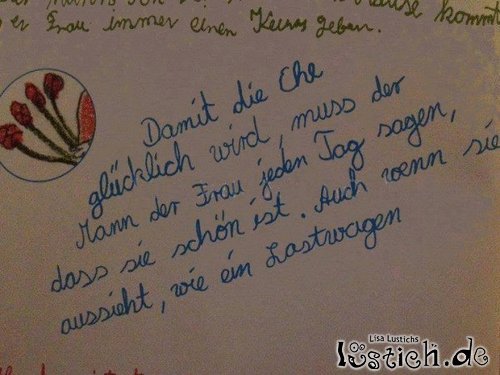 kommt
Frau immer einen Kuss geben.
Damit die Ehe
glücklich wird, muss der
Mann der Frau jeden Tag sagen,
dass sie schön ist. Auch wenn sie
aussieht, wie ein Lastwagen
Lisa Lustichs
lustich.de